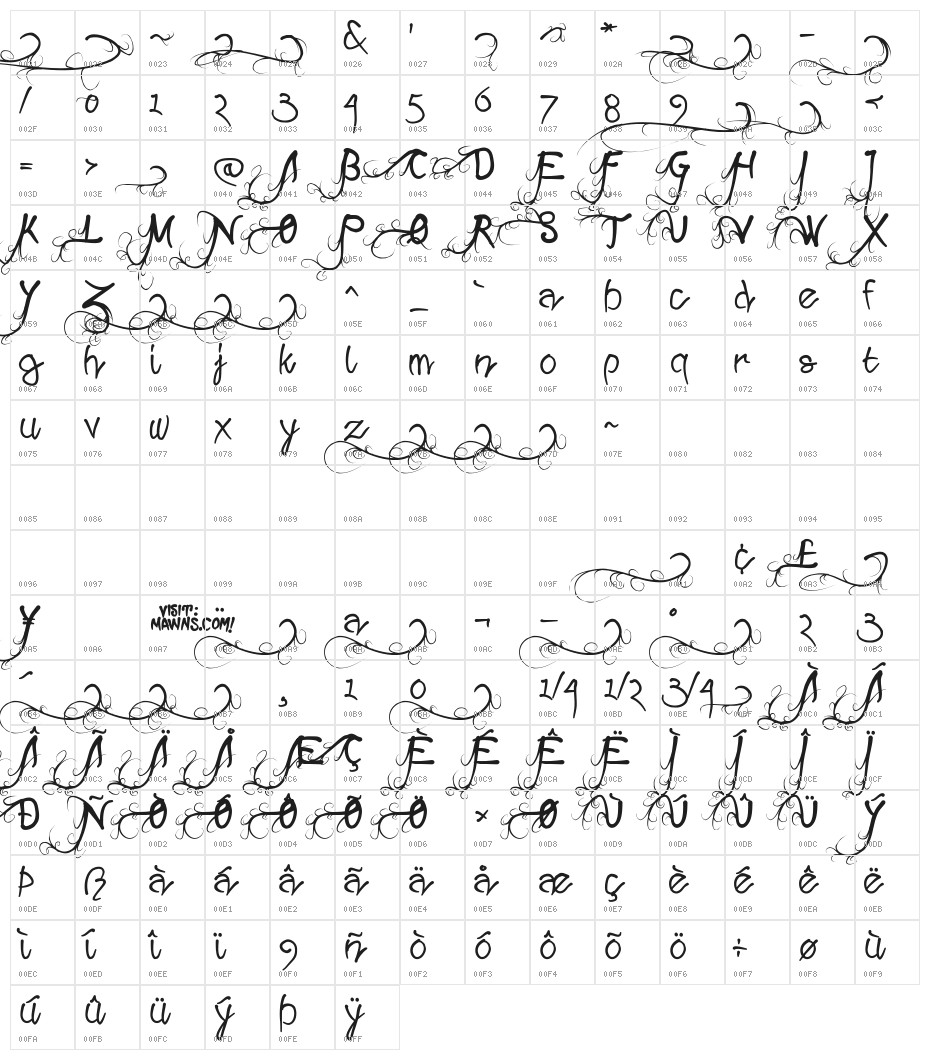 & ' ~ * -
0021 0022 0023 0024 0025 0026 0027 0028 0029 002A 002B 002C 002D 002E
/ 0 1 2 3 4 5 6 7 8 9 <
002F 0030 0031 0032 0033 0034 0035 0036 0037 0038 0039 003A 003B 003C
= > @ A B C D E F G H I J
003D 003E 003F 0040 0041 0042 0043 0044 0045 0046 0047 0048 0049 004A
K L M N O P Q R S T U V W X
004B 004C 004D 004E 004F 0050 0051 0052 0053 0054 0055 0056 0057 0058
Y Z ^ _ ` a b c d e f
0059 005A 005B 005C 005D 005E 005F 0060 0061 0062 0063 0064 0065 0066
g h i j k l m n o p q r s t
0067 0068 0069 006A 006B 006C 006D 006E 006F 0070 0071 0072 0073 0074
u v w x y z ~
0075 0076 0077 0078 0079 007A 007B 007C 007D 007E 0080 0082 0083 0084
0085 0086 0087 0088 0089 008A 008B 008C 008E 0091 0092 0093 0094 0095
¢ £
0096 0097 0098 0099 009A 009B 009C 009E 009F 00A0 00A1 00A2 00A3 00A4
¥ VISIT: MAWNS.COM! ¨ ª ¬ - ° ² ³
00A5 00A6 00A7 00A8 00A9 00AA 00AB 00AC 00AD 00AE 00B0 00B1 00B2 00B3
´ ¸ ¹ º 1/4 1/2 3/4 À Á
00B4 00B5 00B6 00B7 00B8 00B9 00BA 00BB 00BC 00BD 00BE 00BF 00C0 00C1
Â Ã Ä Å Æ Ç È É Ê Ë Ì Í Î Ï
00C2 00C3 00C4 00C5 00C6 00C7 00C8 00C9 00CA 00CB 00CC 00CD 00CE 00CF
Ð Ñ Ò Ó Ô Õ Ö × Ø Ù Ú Û Ü Ý
00D0 00D1 00D2 00D3 00D4 00D5 00D6 00D7 00D8 00D9 00DA 00DB 00DC 00DD
Þ ß à á â ã ä å æ ç è é ê ë
00DE 00DF 00E0 00E1 00E2 00E3 00E4 00E5 00E6 00E7 00E8 00E9 00EA 00EB
ì í î ï ñ ò ó ô õ ö ÷ ø ù
00EC 00ED 00EE 00EF 00F0 00F1 00F2 00F3 00F4 00F5 00F6 00F7 00F8 00F9
ú û ü ý þ ÿ
00FA 00FB 00FC 00FD 00FE 00FF